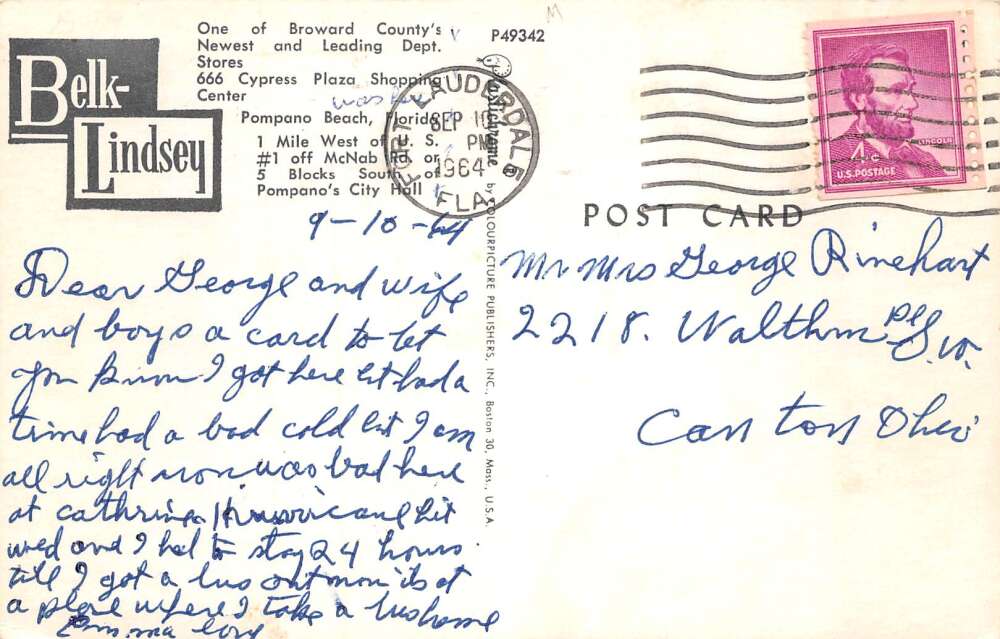 Belk-
Lindsey
One of Broward County's
Newest and Leading Dept.
Stores
666 Cypress Plaza Shopping
Center
Pompano Beach, Florida
1 Mile West of U. S.
#1 off McNab Rd. or
5 Blocks South of
Pompano's City Hall
P49342
Plastichrome
by COLOURPICTURE PUBLISHERS, INC., Boston 30, Mass., U.S.A.
FORT LAUDERDALE
SEP 10
PM
1964
FLA.
LINCOLN
4¢
U.S. POSTAGE
POST CARD
9-10-64
Dear George and wife
and boys a card to let
you know I got here but had a
time had a bad cold but I am
all right now. was bad here
at cathrina Hurricane hit
wed and I had to stay 24 hours
till I got a bus out now its at
a place where I take a bus home
Emma
Mr Mrs George Rinehart
2218. Walthm Pl S.W.
Canton Ohio